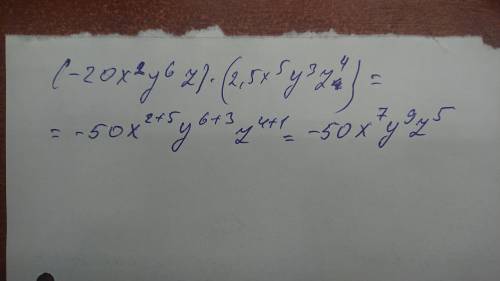 (-20x²y⁶z)·(2,5x⁵y³z⁴) =
= -50x²⁺⁵y⁶⁺³z⁴⁺¹ = -50x⁷y⁹z⁵